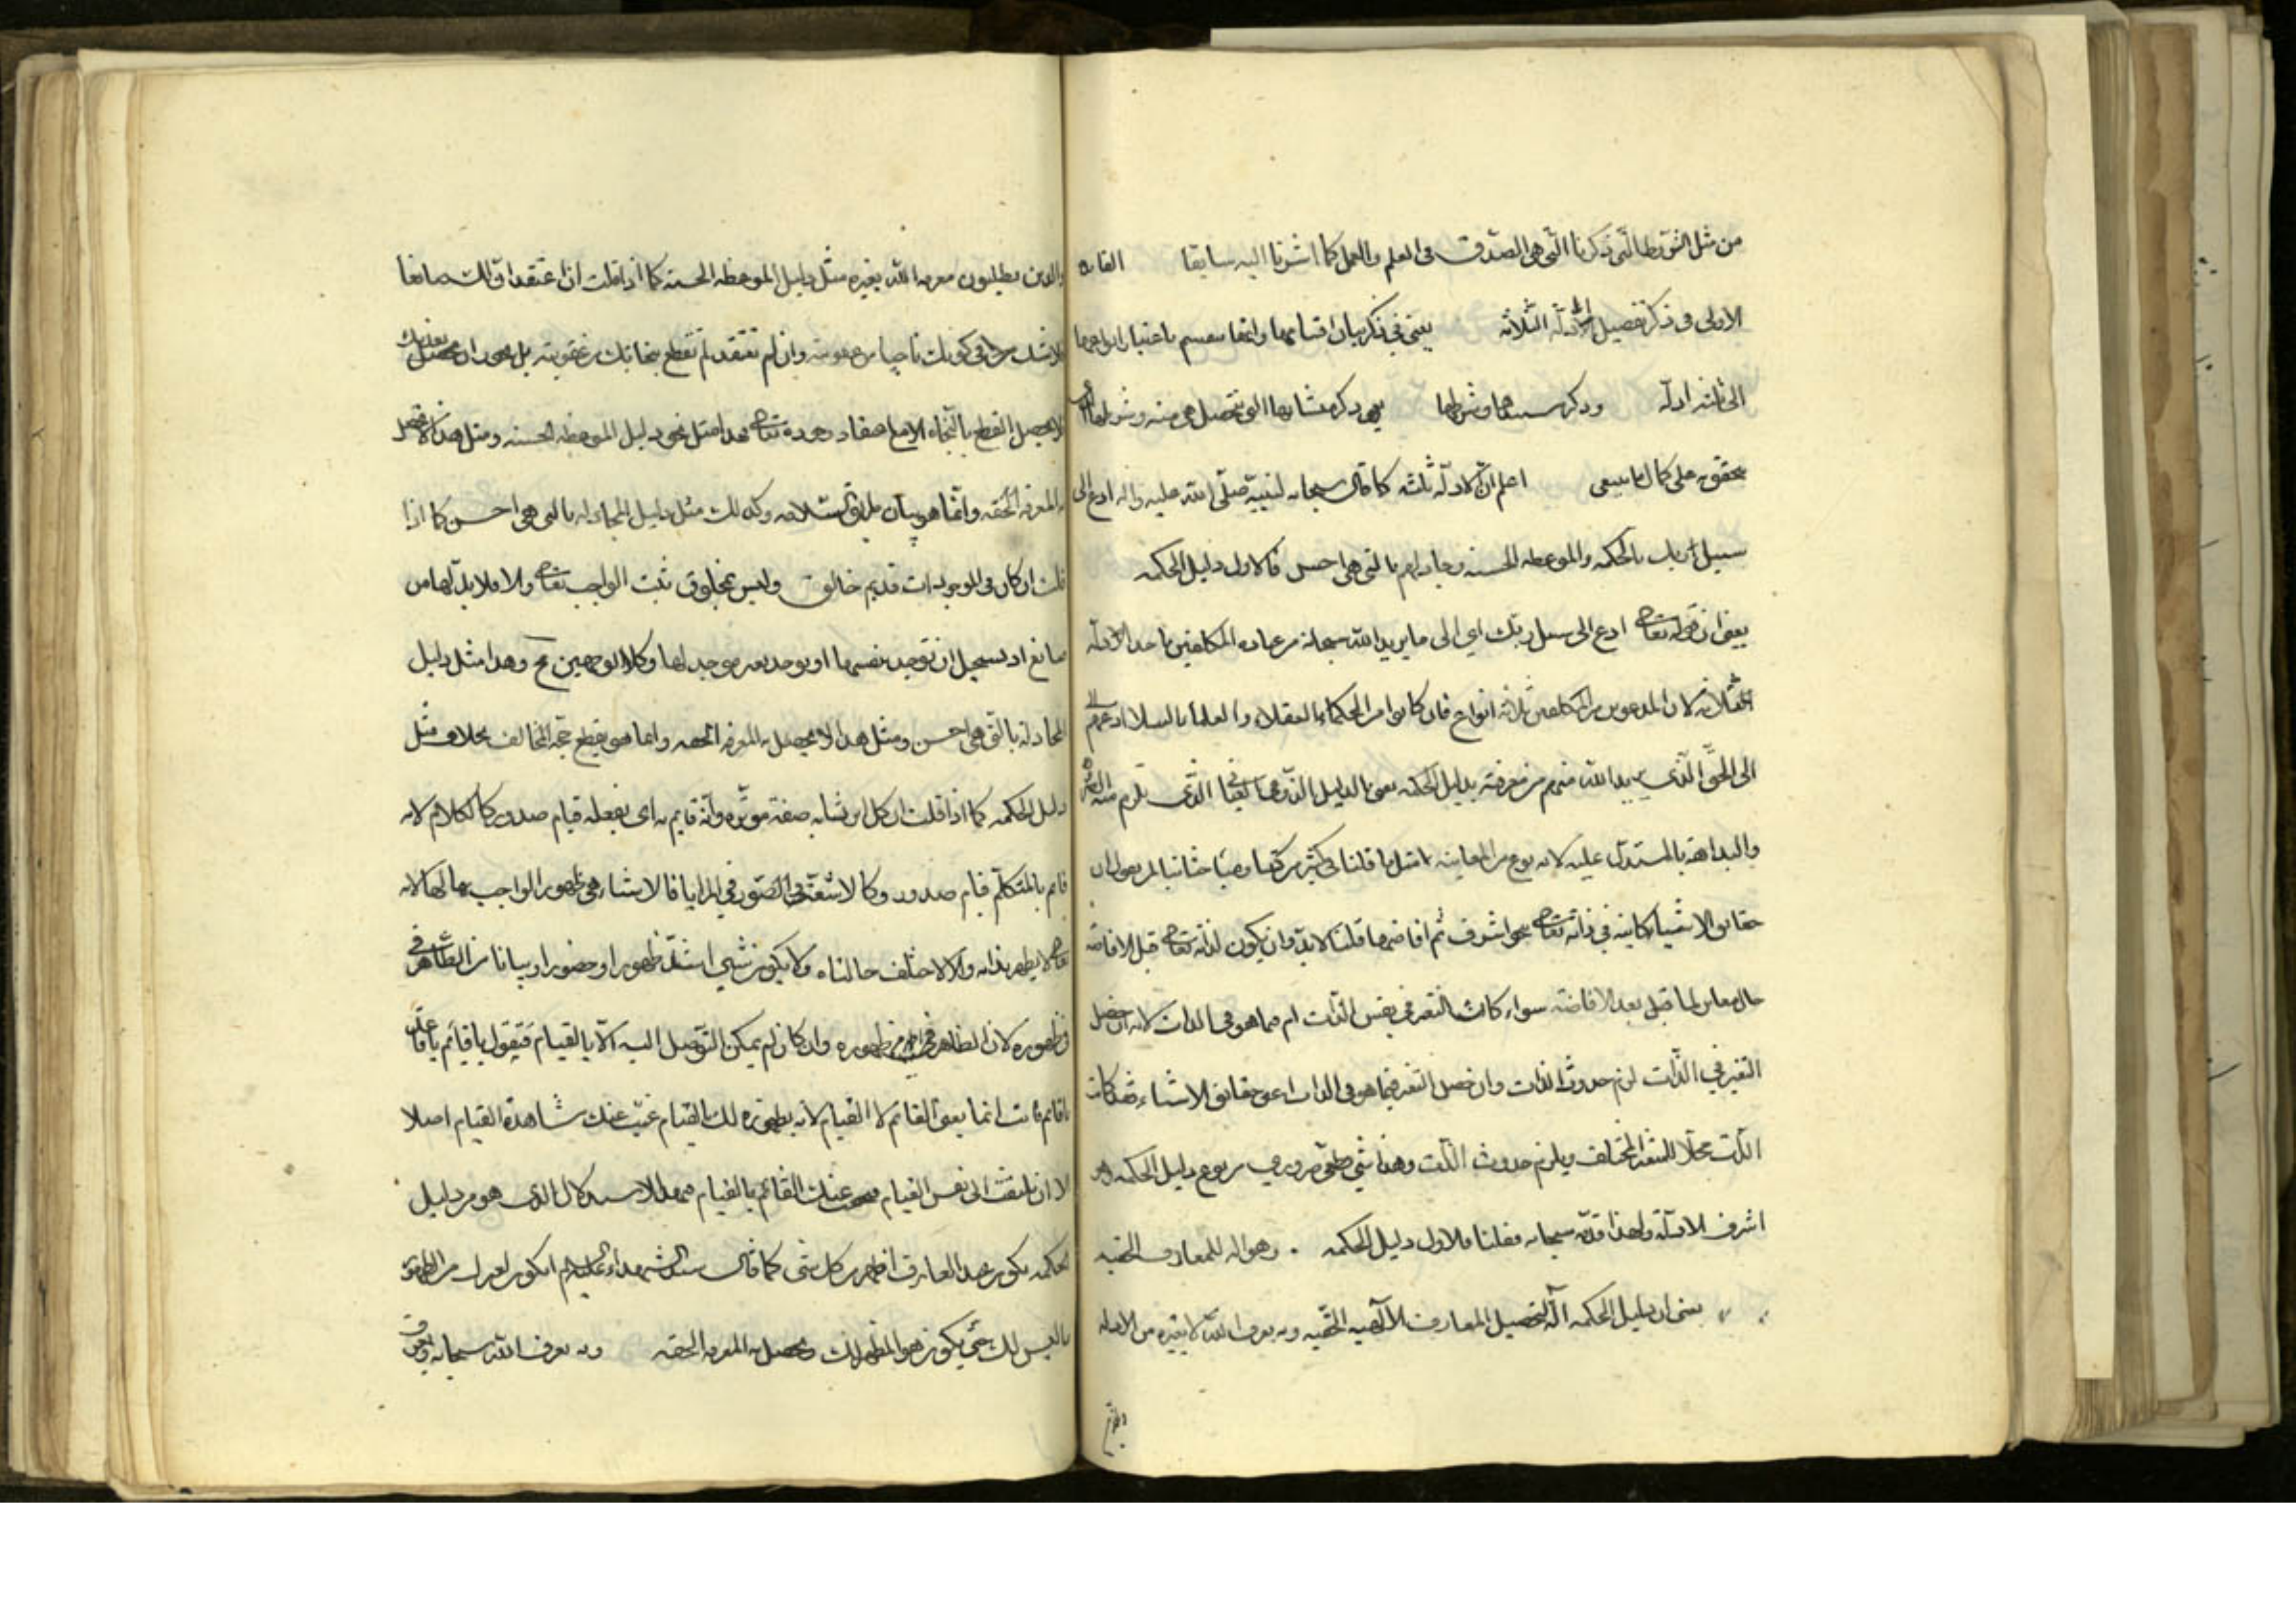 من مثل الشروط التي ذكرنا التي هي الصدق في العلم والعمل كما اشرنا اليه سابقا الفايده
الاولى في ذكر تفصيل الادلّة الثلاثه يعني في ذكر بيان اقسامها وانها تنقسم باعتبار انواعها
الى ثلثه ادلّه وذكر مستندها وشرطها يعني ذكر منشائها التي تتحصل هي منه وشرطها
تتحقق على كمال ما ينبغي اعلم انّ الادلّه ثلثه كما قال سبحانه لنبيّه صلّى الله عليه واله ادع الى
سبيل ربك بالحكمه والموعظه الحسنه وجادلهم بالتي هي احسن فالاول دليل الحكمه
يعني ان قوله تعالى ادع الى سبيل ربّك اي الى ما يريد الله سبحانه من عباده المكلفين باحد الادلّه
الثلاثه لان المدعوين من المكلفين ثلاثه انواع فان كانوا من الحكماء العقلاء والعلماء النبلاء ادعهم
الى الحقّ الّذي يريد الله منهم من معرفته بدليل الحكمه يعني بالدليل الذوقي العياني الّذي تلزم منه
والبداهة بالمستدلّ عليه لانه نوع من المعاينه مثل ما قلنا في كثير من كتبنا ومباحثاتنا لمن يقول ان
حقايق الاشياء كاينه في ذاته تعالى بنحو اشرف ثم افاضها قلنا لا بدّ وان يكون لذاته تعالى قبل الافاضه
حال مغاير لما قبل بعد الافاضه سواء كان التغير في نفس الذّات ام فيما هو في الذات لانه ان حصل
التغير في الذّات لزم حدوث الذات وان حصل التغير فيما هو في الذات اعني حقايق الاشياء فقد كانت
الذّات محلّا للمتغير المختلف ويلزم حدوث الذّات وهذا شيء قطعي ضروري من نوع دليل الحكمه
اشرف الادلّة ولهذا قدّمه سبحانه فقلنا فالاول دليل الحكمه وهو اله للمعارف الحقيه
يعني ان دليل الحكمه آلة لتحصيل المعارف الالهيه الحقّيه وبه يعرف الله لا بغيره من الادله
والذين يطلبون معرفه الله بغيره مثل دليل الموعظه الحسنه كما اذا قلت ان اعتقدت انّ لك صانعا
فلا شك في كونك ناجيا من عقوبته وان لم تعتقد لم تقطع بنجاتك من عقوبته بل يجوز ان يعذبك
فلا يحصل القطع بالنّجاة الا مع اعتقاد وجوده تعالى فهذا مثل نحو دليل الموعظه الحسنه ومثل هذا لا تحصل
به المعرفه الحقّه وانّما هو بيان طريق السّلامه وكذلك مثل دليل المجادله بالتي هي احسن كما اذا
قلت ان كان في الموجودات قديم خالق وليس بمخلوق ثبت الواجب تعالى والا فلا بدّ لها من
صانع اذ يستحيل ان توجد نفسها او توجد بغير موجد لها وكلا الوجهين مح وهذا مثل دليل
المجادله بالتي هي احسن ومثل هذا لا يحصل به المعرفه الحقه وانما هي تقطع حجّه المخالف بخلاف مثل
دليل الحكمه كما اذا قلت ان كل اثر يشابه صفة موثّره وانّه قايم به اي بفعله قيام صدور كالكلام لانه
قايم بالمتكلّم قيام صدور وكالاشعّة والصّور في المرايا فالاشياء هي ظهور الواجب بها لها لانه
تعالى لا يظهر بذاته والا لاختلف حالتاه ولا يكون شيء اشدّ ظهورا وحضورا وبيانا من الظاهر في
ظهوره لان الظاهر اظهر من ظهوره وان كان لم يمكن التوصل اليه الا بالقيام فتقول يا قائم يا قاعد
يا قائم فانت انما يعني القائم لا القيام لانه بظهوره لك بالقيام غيّب عنك مشاهدة القيام اصلا
الا ان تلتفت الى نفس القيام فيحتجب عنك القائم بالقيام فبهذا الاستدلال الذي هو من دليل
الحكمه يكون عند العارف اظهر من كل شيء كما قال سيّد الشهداء عليه السلام ايكون لغيرك من الظهور
ما ليس لك حتى يكون هو المظهر لك ويحصل به المعرفه الحقه وبه يعرف الله سبحانه ويعرف